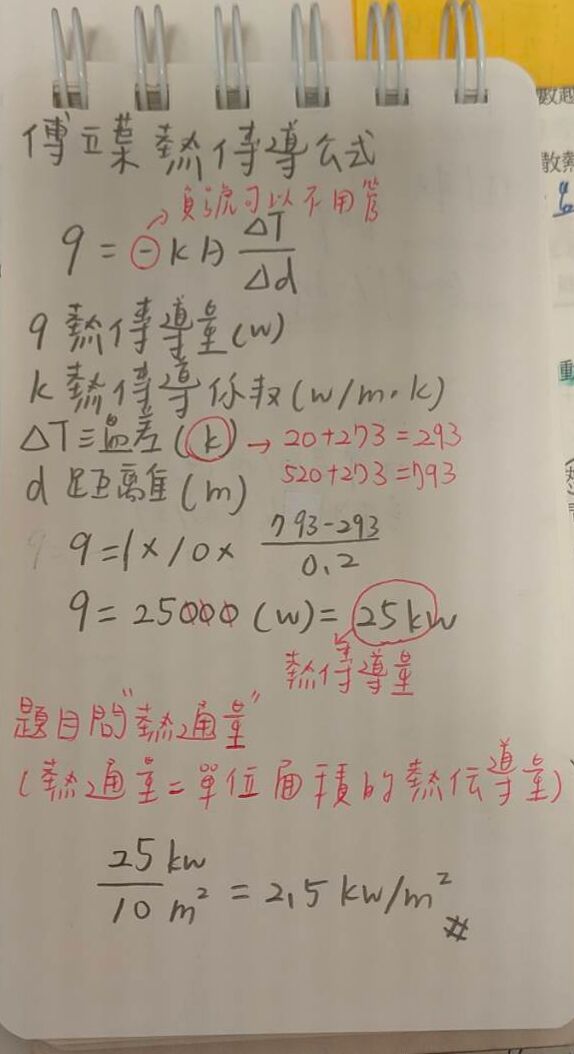 傅立葉熱傳導公式
→負號可以不用管
q = -kA ΔT/Δd
q 熱傳導量(w)
k 熱傳導係数(w/m.k)
ΔT=溫差(k) → 20+273=293
520+273=793
d 距離(m)
q=1×10× 793-293/0.2
q=25000(w)=25kw
熱傳導量
題目問"熱通量"
(熱通量=單位面積的熱傳導量)
25kw/10m² = 2.5 kw/m² #
數越
散熱
動